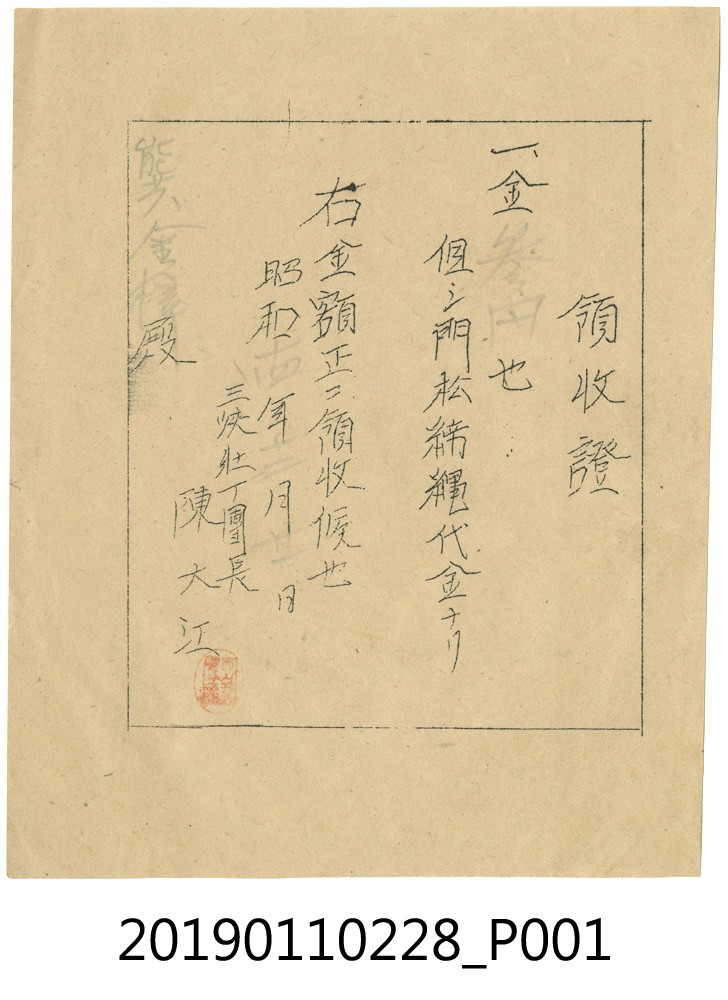 領收證
一、金參円也
但シ門松締繩代金ナリ
右金額正ニ領收候也
昭和 年十二月 日
三峽壯丁團長
陳大江
金 殿
20190110228_P001